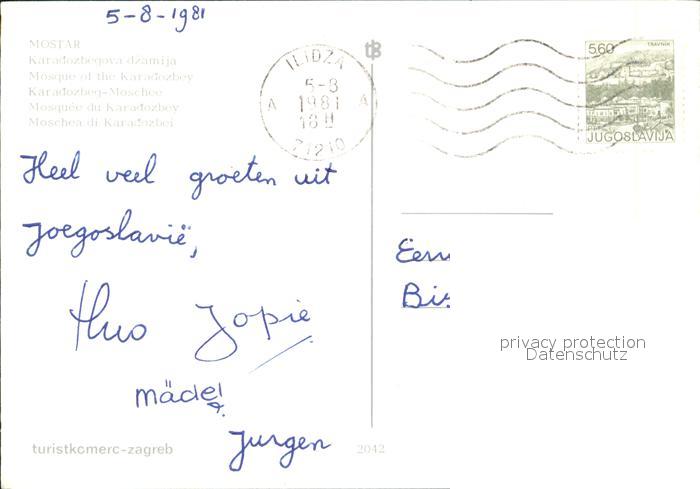 5-8-1981
MOSTAR
Karađozbegova džamija
Mosque of the Karađozbey
Karađozbeg-Moschee
Mosquée du Karađozbey
Moschea di Karađozbei
ILIDŽA
5-8
1981
18
A A
71210
5.60 TRAVNIK
JUGOSLAVIJA
Heel veel groeten uit
Joegoslavië,
Jopie
mädel
Jurgen
privacy protection
Datenschutz
turistkomerc-zagreb
2042